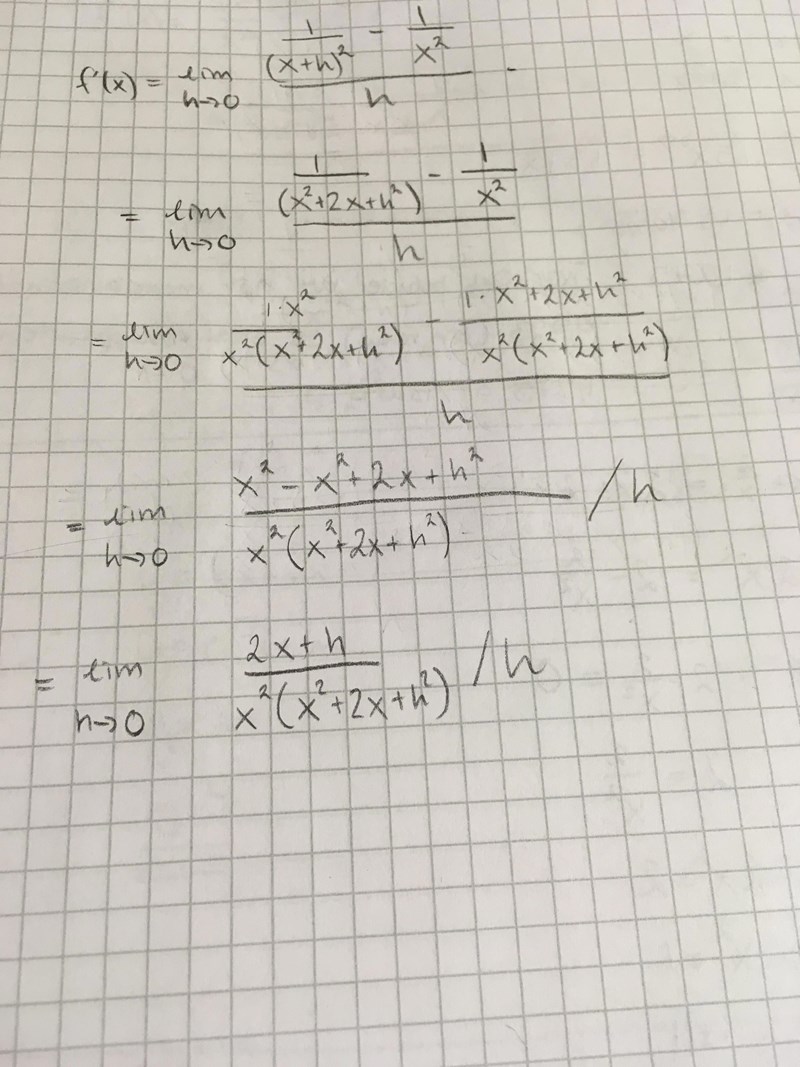 f'(x) = lim h→0 (1/(x+h)² - 1/x²)/h
= lim h→0 (1/(x²+2x+h²) - 1/x²)/h
= lim h→0 ((1·x²)/(x²(x²+2x+h²)) - (1·x²+2x+h²)/(x²(x²+2x+h²)))/h
= lim h→0 (x² - x²+2x+h²)/(x²(x²+2x+h²)) /h
= lim h→0 (2x+h)/(x²(x²+2x+h²)) /h